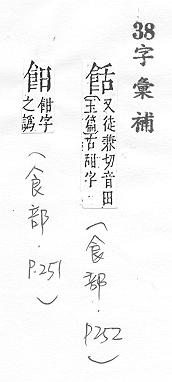 38字彙補
餂又徒兼切音田
〔玉篇〕古甜字
(食部.P252)
字
之譌
(食部.P.251)